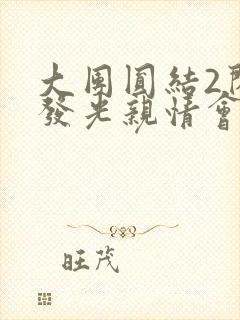 大團圓結2
發光親情會
旺茂